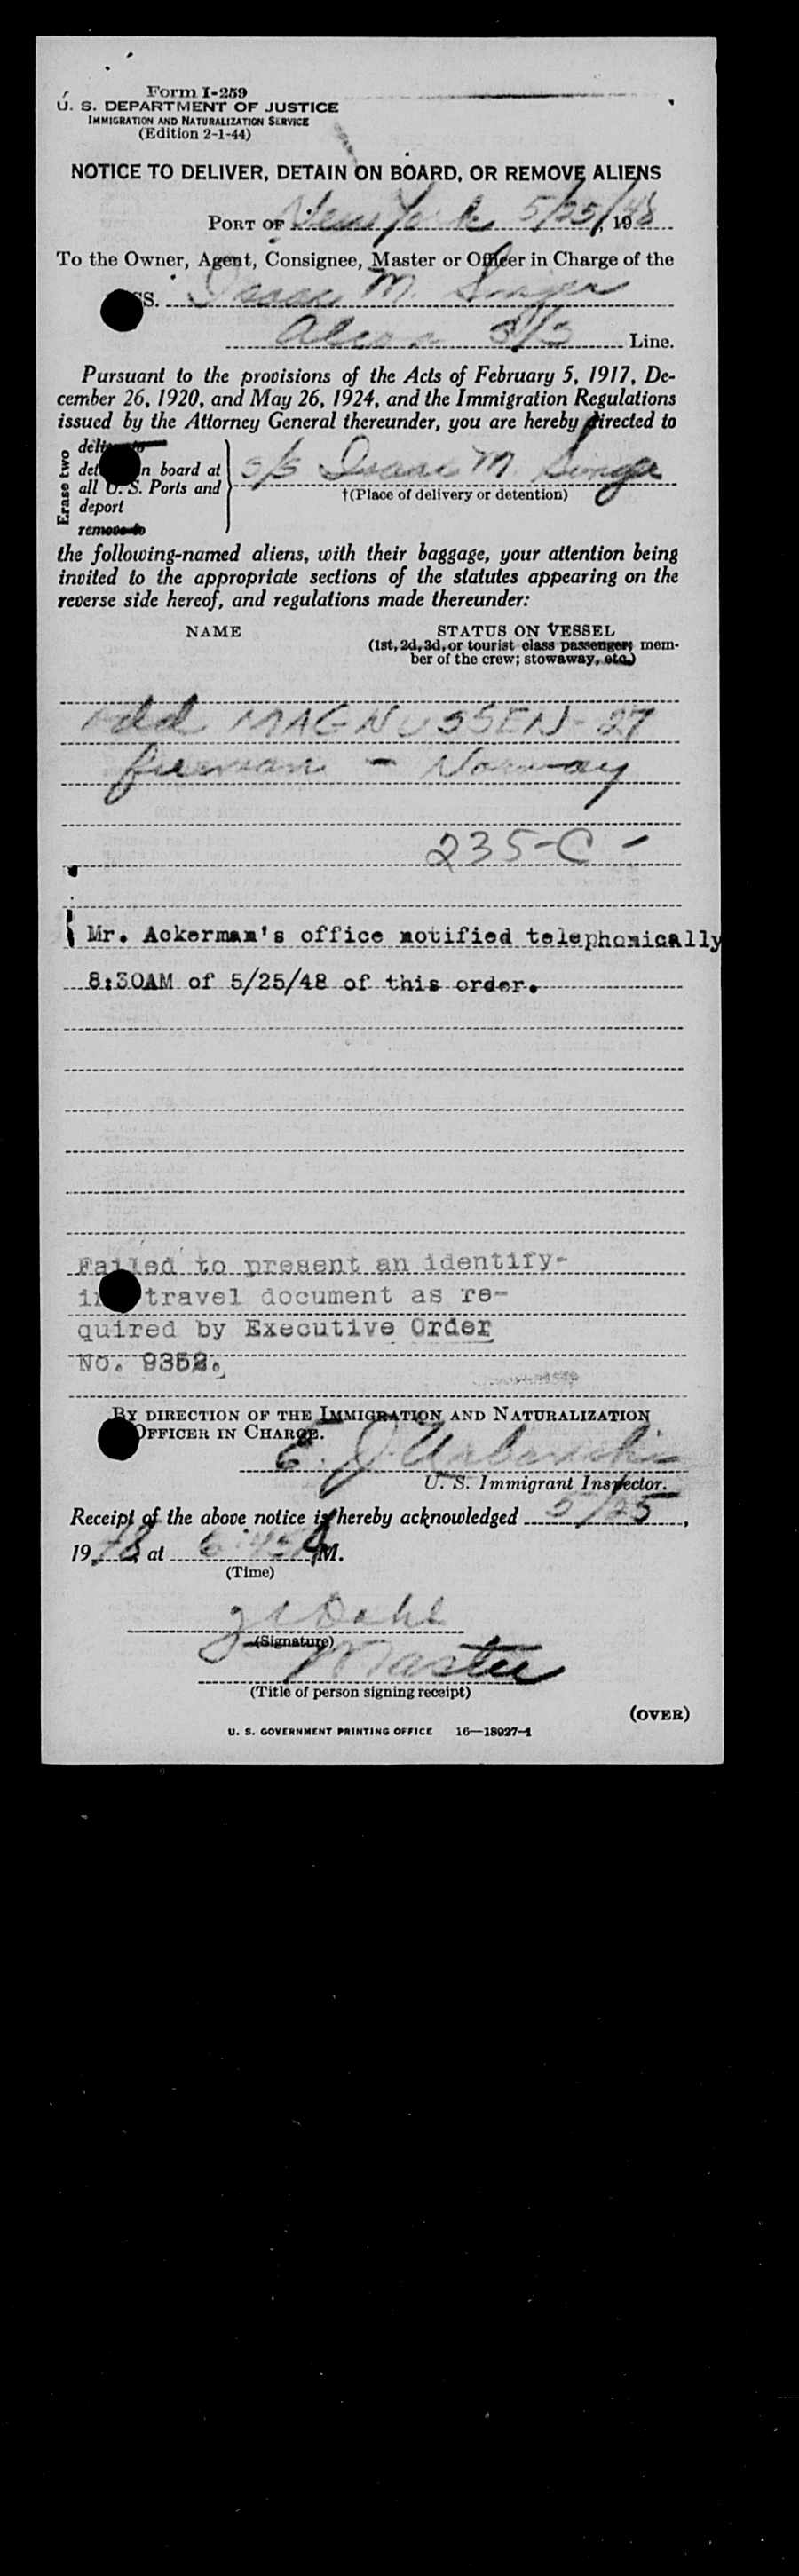 Form I-259
U. S. DEPARTMENT OF JUSTICE
IMMIGRATION AND NATURALIZATION SERVICE
(Edition 2-1-44)
NOTICE TO DELIVER, DETAIN ON BOARD, OR REMOVE ALIENS
PORT OF New York 5/25/, 1948
To the Owner, Agent, Consignee, Master or Officer in Charge of the
SS. Isaac M. Singer
Alcoa S/S Line.
Pursuant to the provisions of the Acts of February 5, 1917, De-
cember 26, 1920, and May 26, 1924, and the Immigration Regulations
issued by the Attorney General thereunder, you are hereby directed to
Erase two
n board at
all U. S. Ports and
deport
remove to
s/s Isaac M. Singer
†(Place of delivery or detention)
the following-named aliens, with their baggage, your attention being
invited to the appropriate sections of the statutes appearing on the
reverse side hereof, and regulations made thereunder:
NAME
STATUS ON VESSEL
(1st, 2d, 3d, or tourist class passenger; mem-
ber of the crew; stowaway, etc.)
Odd MAGNUSSEN - 27
fireman - Norway
235-C -
Mr. Ackerman's office notified telephonically
8:30AM of 5/25/48 of this order.
Failed to present an identify-
travel document as re-
quired by Executive Order
No. 9352.
BY DIRECTION OF THE IMMIGRATION AND NATURALIZATION
OFFICER IN CHARGE.
E. J.
U. S. Immigrant Inspector.
Receipt of the above notice is hereby acknowledged 5/25,
1948, at 6:45 A M.
(Time)
Dahl
(Signature)
Master
(Title of person signing receipt)
(OVER)
U. S. GOVERNMENT PRINTING OFFICE 16—18927-1